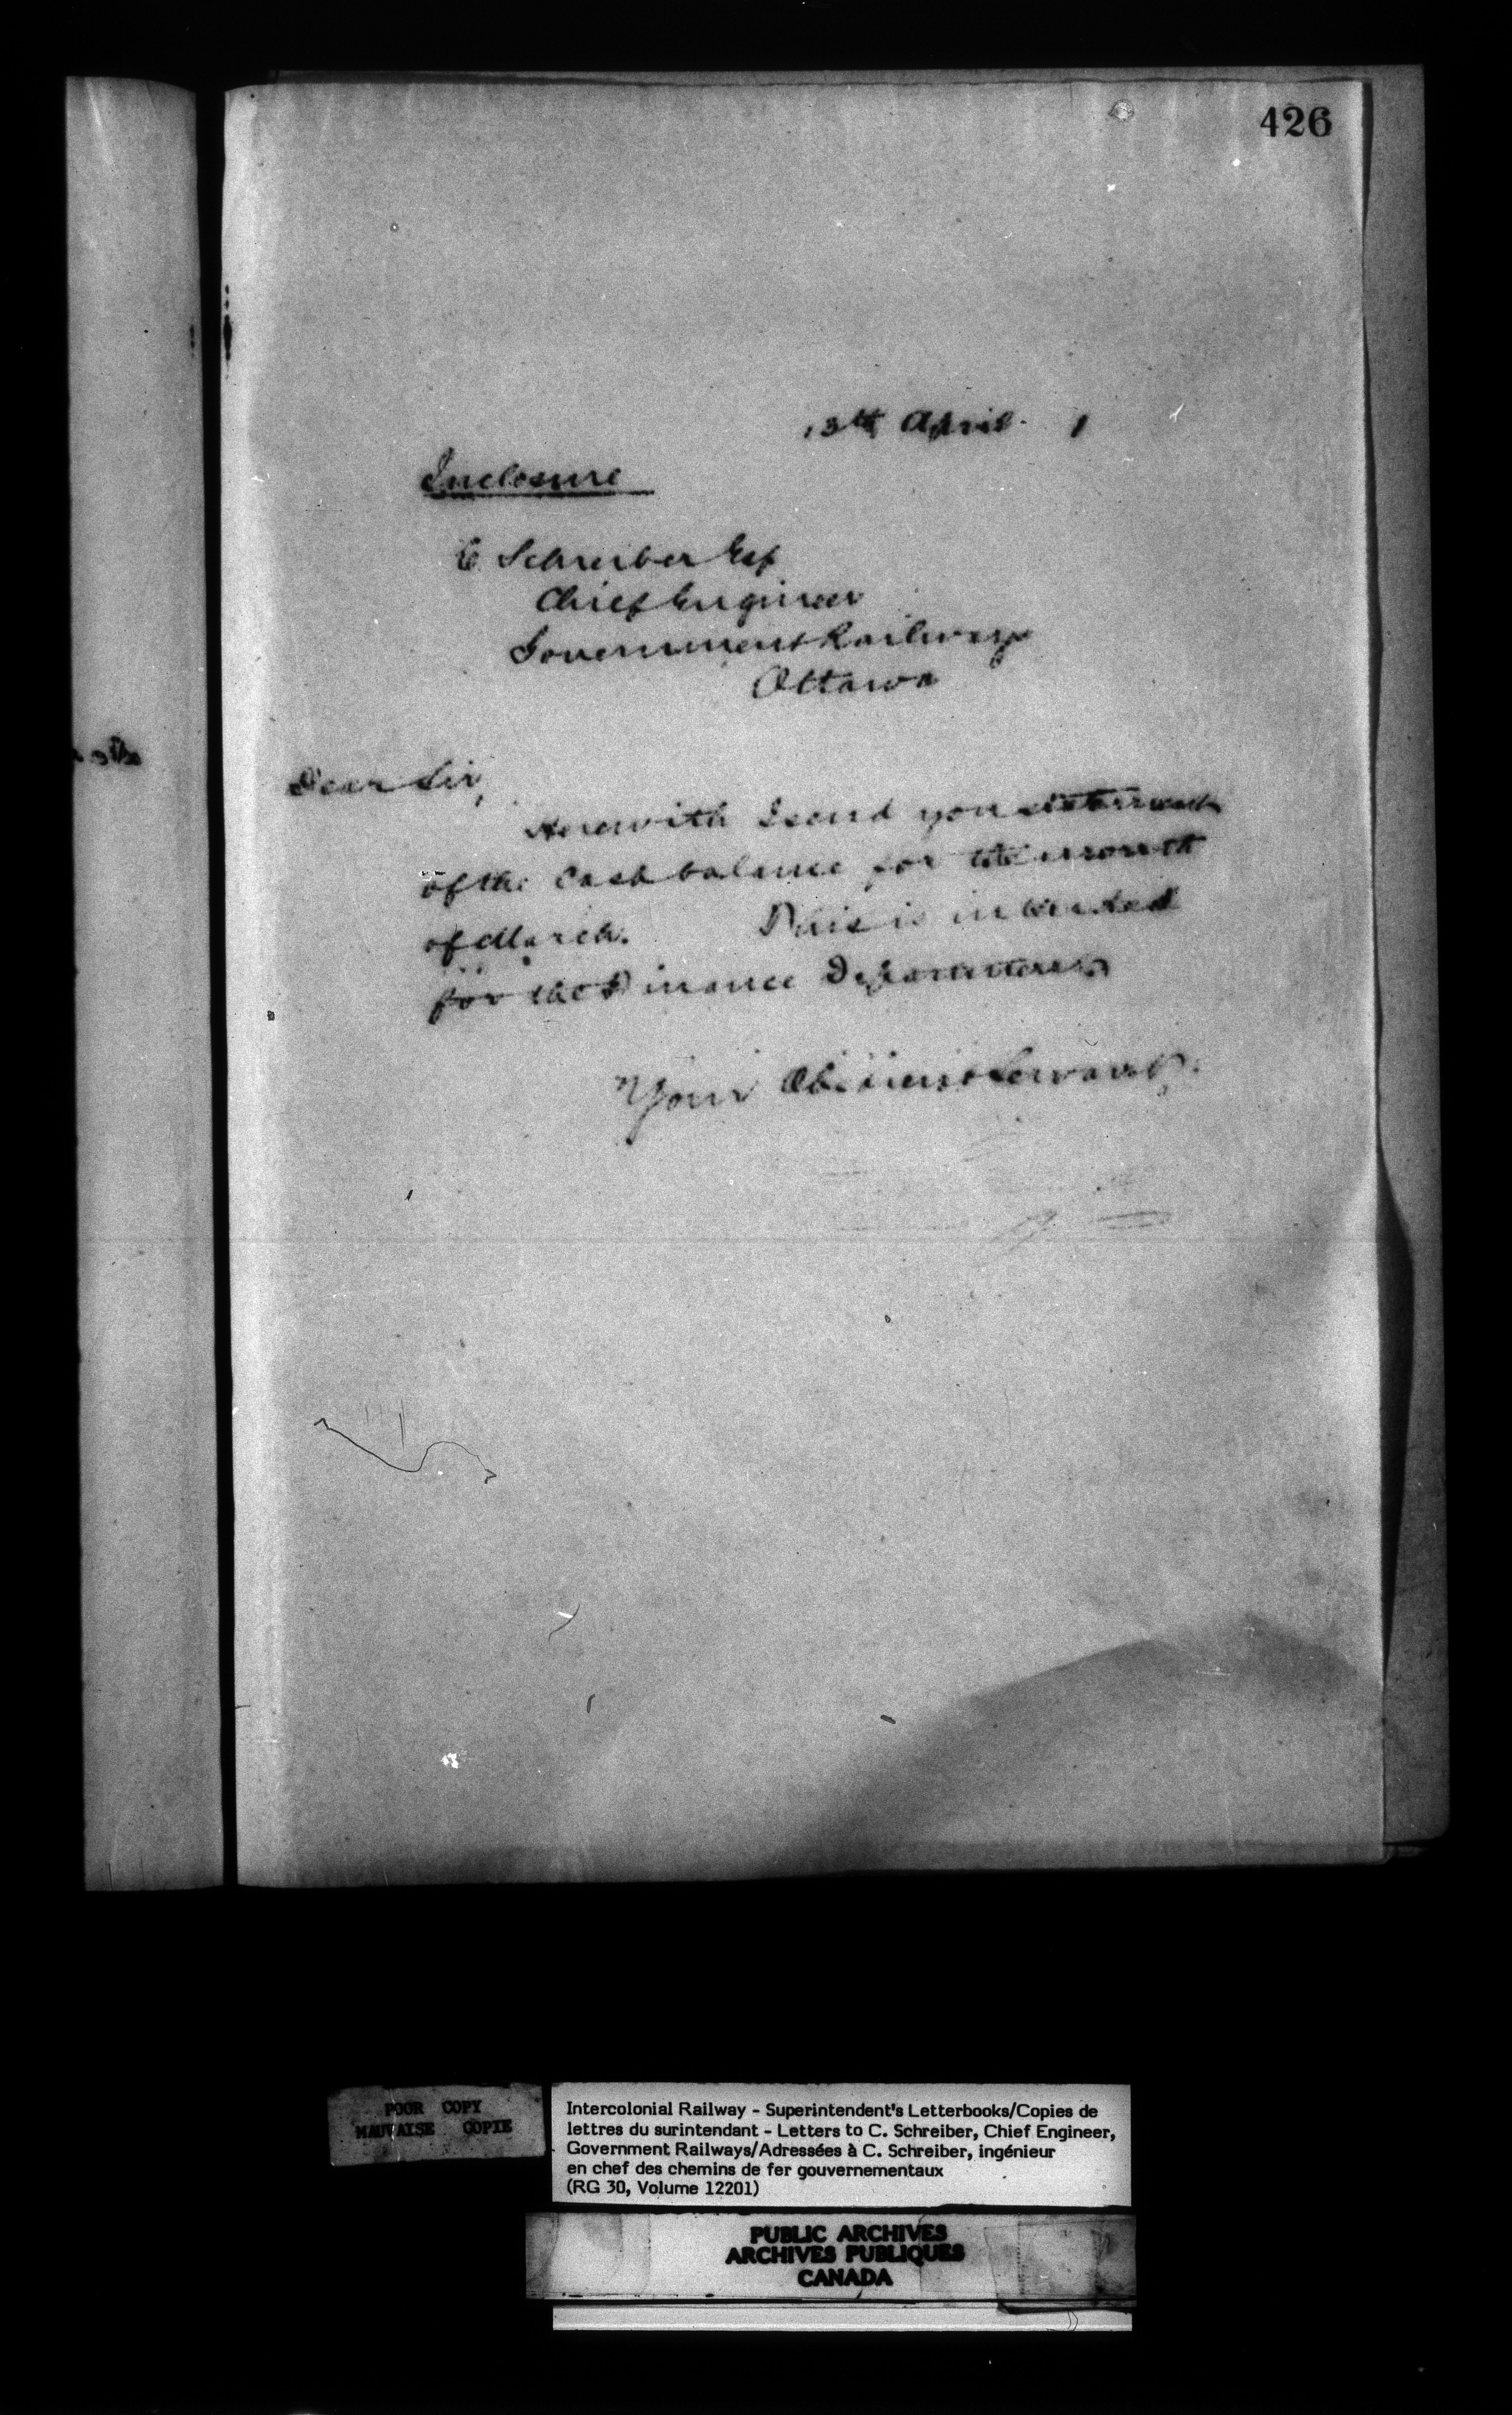 426
13th April. 1
Enclosure
C Schreiber Esq
Chief Engineer
Government Railways
Ottawa
Dear Sir,
Herewith I send you statement
of the Cash balance for the month
of March. This is intended
for the Finance Department
Your Obedient Servant
POOR COPY
MAUVAISE COPIE
Intercolonial Railway - Superintendent's Letterbooks/Copies de
lettres du surintendant - Letters to C. Schreiber, Chief Engineer,
Government Railways/Adressées à C. Schreiber, ingénieur
en chef des chemins de fer gouvernementaux
(RG 30, Volume 12201)
PUBLIC ARCHIVES
ARCHIVES PUBLIQUES
CANADA